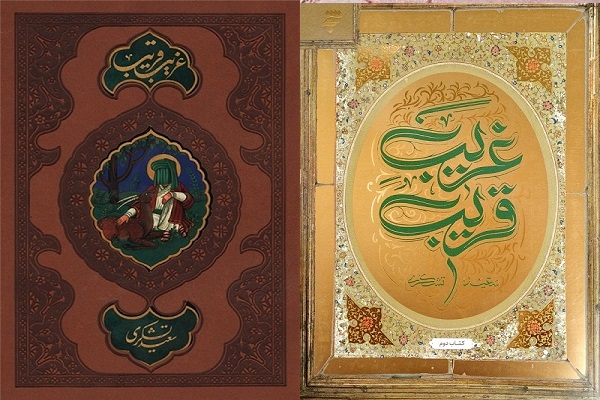 غریب قریب
سعید تشکری
غریبِ
قریب
سعید تشکری
کتاب دوم